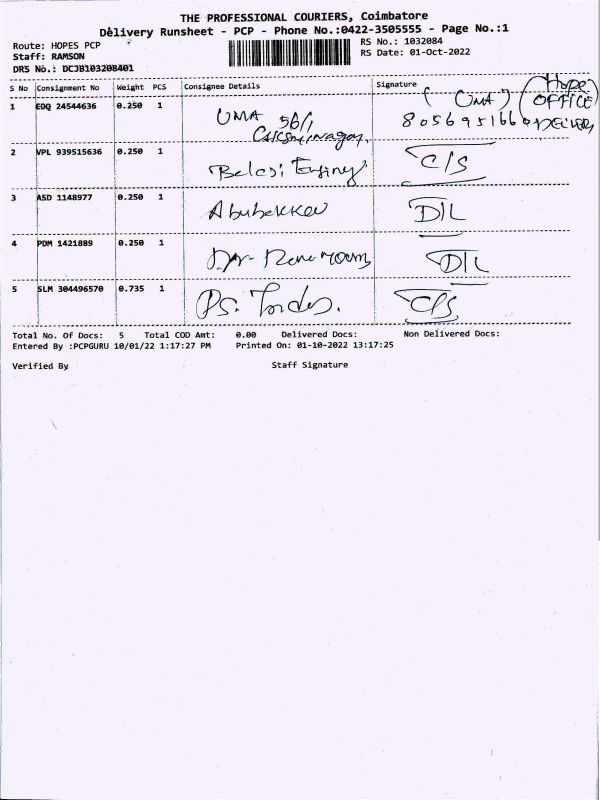 THE PROFESSIONAL COURIERS, Coimbatore
Delivery Runsheet - PCP - Phone No.:0422-3505555 - Page No.:1
Route: HOPES PCP RS No.: 1032084
Staff: RAMSON RS Date: 01-Oct-2022
DRS No.: DCJB103208401
S No Consignment No Weight PCS Consignee Details Signature
(UMA) (Hope OFFICE DELIVERY
1 EDQ 24544636 0.250 1 UMA 56/1 8056951660
2 VPL 939515636 0.250 1 C/S
3 ASD 1148977 0.250 1 Abubekker D/L
4 PDM 1421889 0.250 1 D/L
5 SLM 304496570 0.735 1 PS. C/S
Total No. Of Docs: 5 Total COD Amt: 0.00 Delivered Docs: Non Delivered Docs:
Entered By :PCPGURU 10/01/22 1:17:27 PM Printed On: 01-10-2022 13:17:25
Verified By Staff Signature